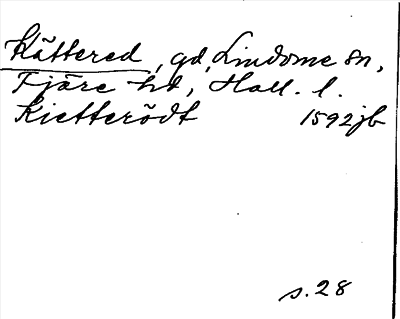 Kättered, gd, Lindome sn,
Fjäre hd, Hall. l.
Kietterödt 1592 jb
s. 28